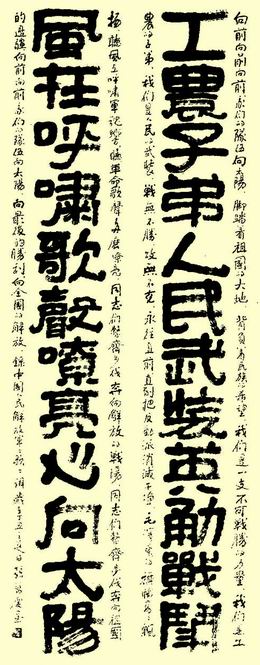 向前向前向前我们的隊伍向太陽 脚踏着祖國的大地 背負着民族的希望 我们是一支不可戰勝的力量 我们是工
工農子弟人民武裝英勇戰鬥
農的子弟 我们是人民的武裝 戰無不勝 攻無不克 永往直前直到把反動派消滅干淨 毛澤東的旗幟高高飄
揚 聽風在呼嘯軍號響 聽革命歌聲多麼嘹亮 同志们整齊步伐奔向解放的戰場 同志们整齊步伐奔向祖國
風在呼嘯歌聲嘹亮心向太陽
的邊疆 向前向前 我们的隊伍向太陽 向最後的勝利 向全國的解放 錄中國人民解放軍之歌